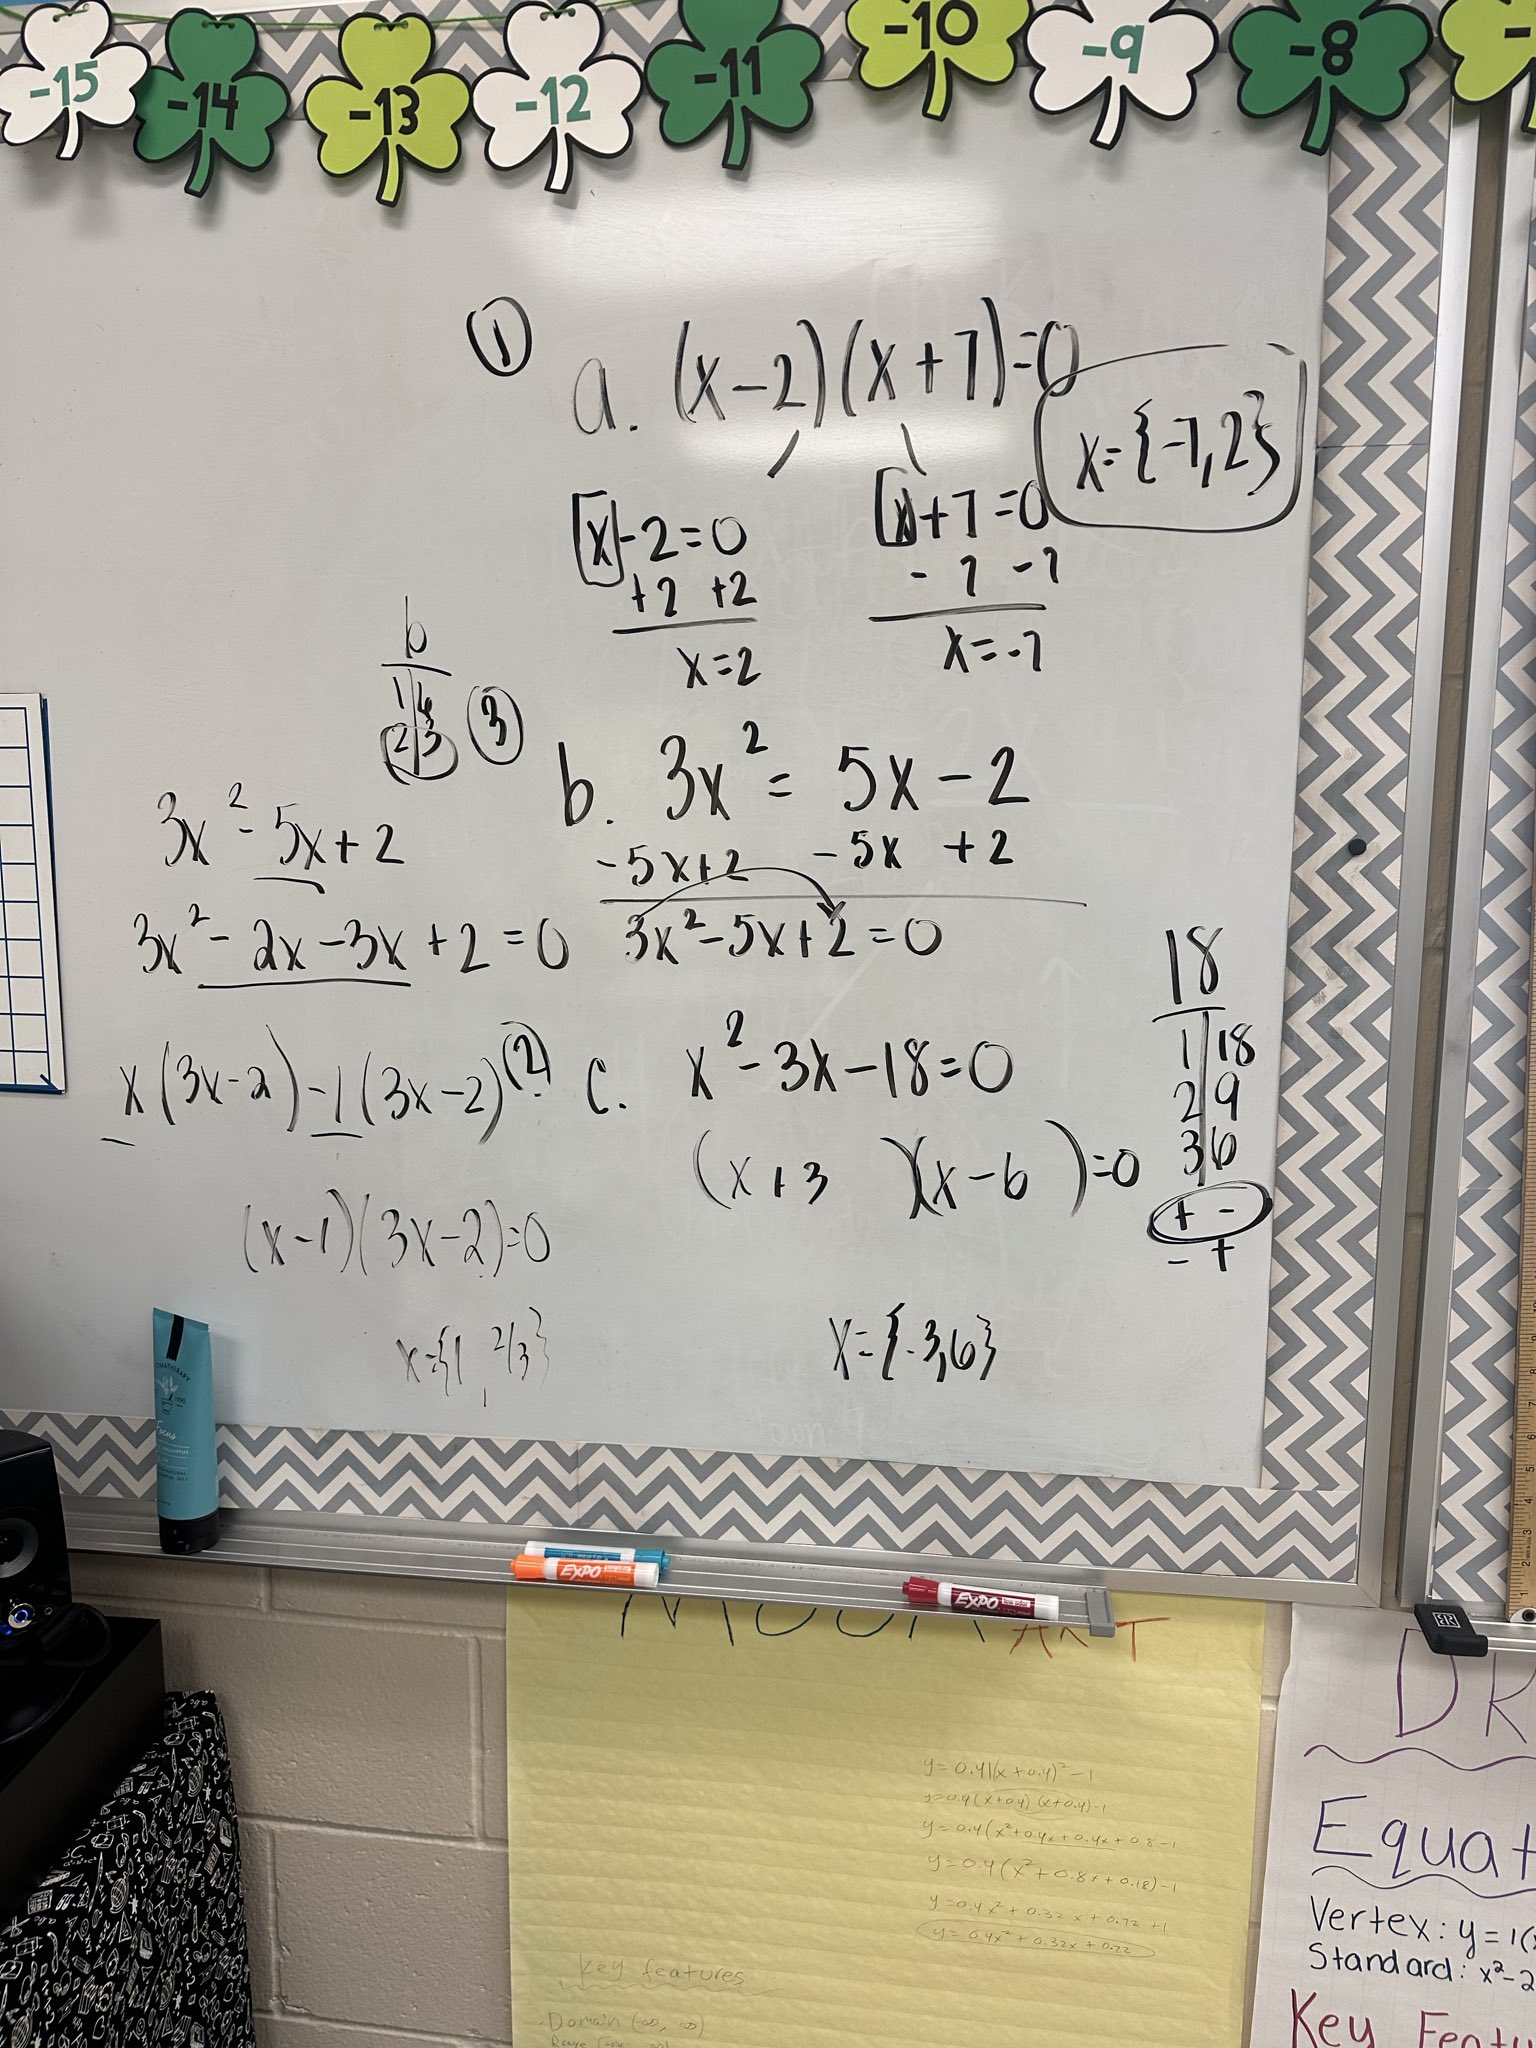 -15 -14 -13 -12 -11 -10 -9 -8
①
a. (x-2)(x+7)=0
x={-7,2}
x-2=0
+2 +2
x=2
x+7=0
-7 -7
x=-7
③
b. 3x² = 5x-2
-5x+2 -5x +2
3x²-5x+2=0
6
1|6
2|3
3x²-5x+2
3x²-2x-3x+2=0
x(3x-2)-1(3x-2)
(x-1)(3x-2)=0
x={1, 2/3}
②
c. x²-3x-18=0
(x+3)(x-6)=0
x={-3,6}
18
1|18
2|9
3|6
+ -
- +
Focus
EXPO
EXPO
ART
y=0.4(x+0.4)²-1
y=0.4(x+0.4)(x+0.4)-1
y=0.4(x²+0.4x+0.4x+0.8-1
y=0.4(x²+0.8x+0.18)-1
y=0.4x²+0.32x+0.72+1
y=0.4x²+0.32x+0.72
key features
Domain (-∞, ∞)
DR
Equat
Vertex: y=1(
Standard: x²-2
Key Featu